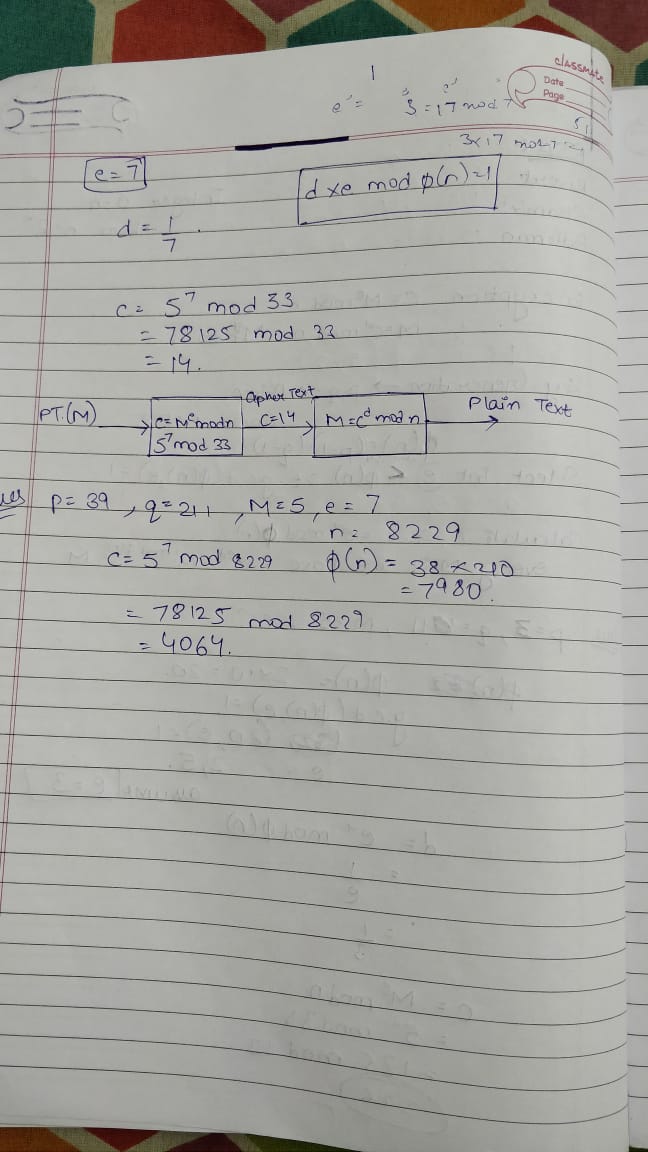 classmate
Date
Page
e⁻¹ =
3 = 17 mod 7
3x 17 mod 7
e = 7
d x e mod φ(n) = 1
d = 1/7.
C = 5⁷ mod 33
= 78125 mod 33
= 14.
PT.(M) C = Mᵉ mod n Cipher Text C=14 M = Cᵈ mod n Plain Text
5⁷ mod 33
P = 39, q = 211, M = 5, e = 7
n = 8229
C = 5⁷ mod 8229 φ(n) = 38 x 210
= 7980.
= 78125 mod 8229
= 4064.